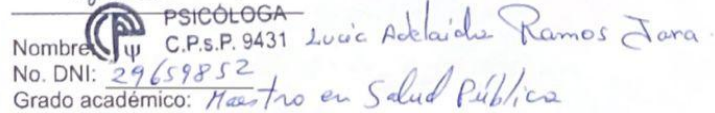 PSICÓLOGA
Nombre C.P.s.P. 9431 Lucia Adelaida Ramos Jara.
No. DNI: 29659852
Grado académico: Maestro en Salud Pública